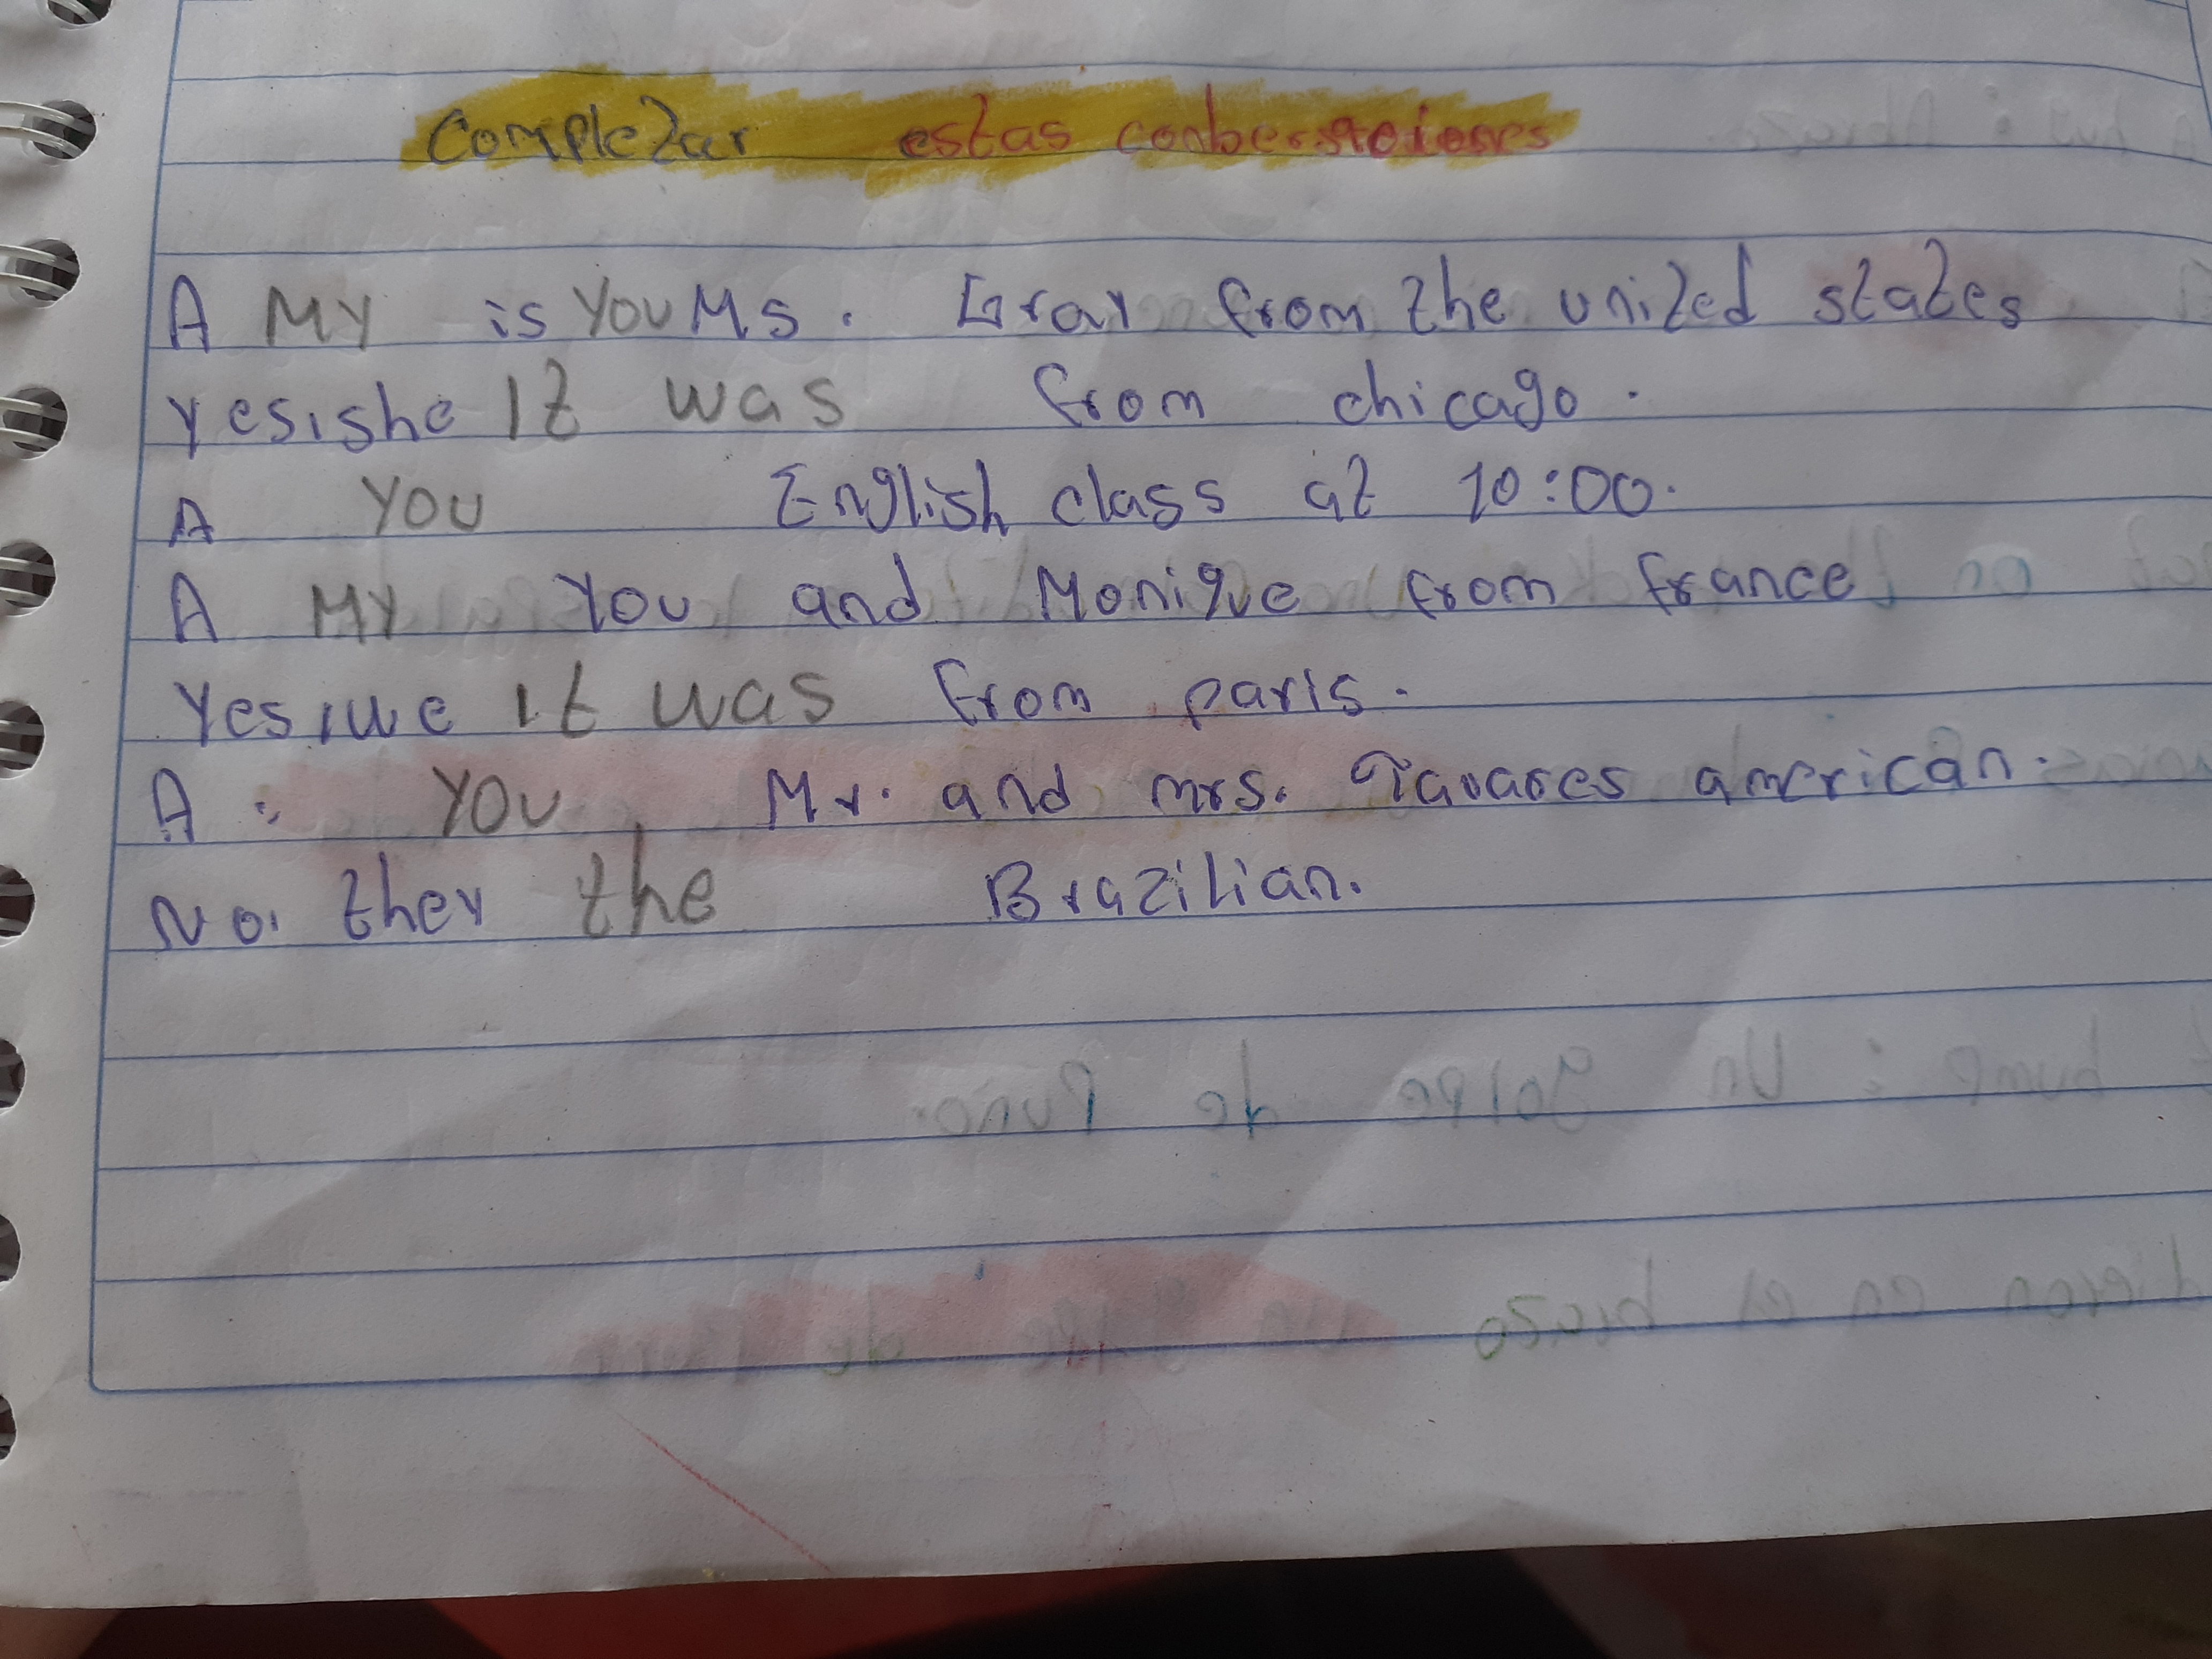 Completar estas conbersaciones
A MY is You Ms. Gray from the united states
yes, she It was from chicago.
A You English class at 10:00.
A MY You and Monique from france
Yes, we it was from paris.
A: You Mr. and mrs. Tavares american.
No. they the Brazilian.